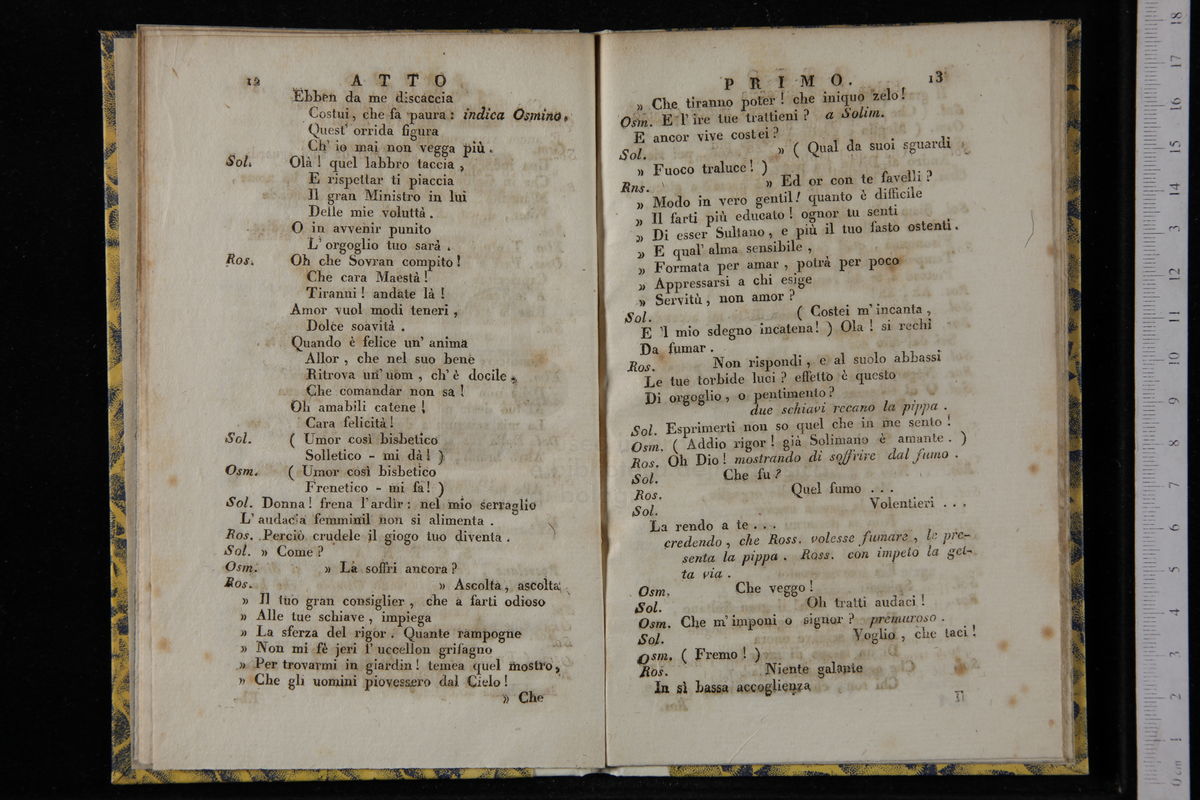 12 ATTO
Ebben da me discaccia
Costui, che fa paura: indica Osmino.
Quest' orrida figura
Ch' io mai non vegga più.
Sol. Olà! quel labbro taccia,
E rispettar ti piaccia
Il gran Ministro in lui
Delle mie voluttà.
O in avvenir punito
L' orgoglio tuo sarà.
Ros. Oh che Sovran compito!
Che cara Maestà!
Tiranni! andate là!
Amor vuol modi teneri,
Dolce soavità.
Quando è felice un' anima
Allor, che nel suo bene
Ritrova un' uom, ch' è docile,
Che comandar non sa!
Oh amabili catene!
Cara felicità!
Sol. ( Umor così bisbetico
Solletico - mi dà! )
Osm. ( Umor così bisbetico
Frenetico - mi fa! )
Sol. Donna! frena l'ardir: nel mio serraglio
L' audacia femminil non si alimenta.
Ros. Perciò crudele il giogo tuo diventa.
Sol. » Come?
Osm. » La soffri ancora?
Ros. » Ascolta, ascolta;
» Il tuo gran consiglier, che a farti odioso
» Alle tue schiave, impiega
» La sferza del rigor. Quante rampogne
» Non mi fè jeri l' uccellon grifagno
» Per trovarmi in giardin! temea quel mostro,
» Che gli uomini piovessero dal Cielo!
» Che
PRIMO. 13
» Che tiranno poter! che iniquo zelo!
Osm. E l' ire tue trattieni? a Solim.
E ancor vive costei?
Sol. » ( Qual da suoi sguardi
» Fuoco traluce! )
Rns. » Ed or con te favelli?
» Modo in vero gentil! quanto è difficile
» Il farti più educato! ognor tu senti
» Di esser Sultano, e più il tuo fasto ostenti.
» E qual' alma sensibile,
» Formata per amar, potrà per poco
» Appressarsi a chi esige
» Servitù, non amor?
Sol. ( Costei m' incanta,
E 'l mio sdegno incatena! ) Ola! si rechi
Da fumar.
Ros. Non rispondi, e al suolo abbassi
Le tue torbide luci? effetto è questo
Di orgoglio, o pentimento?
due schiavi recano la pippa.
Sol. Esprimerti non so quel che in me sento!
Osm. ( Addio rigor! già Solimano è amante. )
Ros. Oh Dio! mostrando di soffrire dal fumo.
Sol. Che fu?
Ros. Quel fumo ...
Sol. Volentieri ...
La rendo a te ...
credendo, che Ross. volesse fumare, le pre-
senta la pippa. Ross. con impeto la get-
ta via.
Osm. Che veggo!
Sol. Oh tratti audaci!
Osm. Che m' imponi o signor? premuroso.
Sol. Voglio, che taci!
Osm. ( Fremo! )
Ros. Niente galante
In sì bassa accoglienza